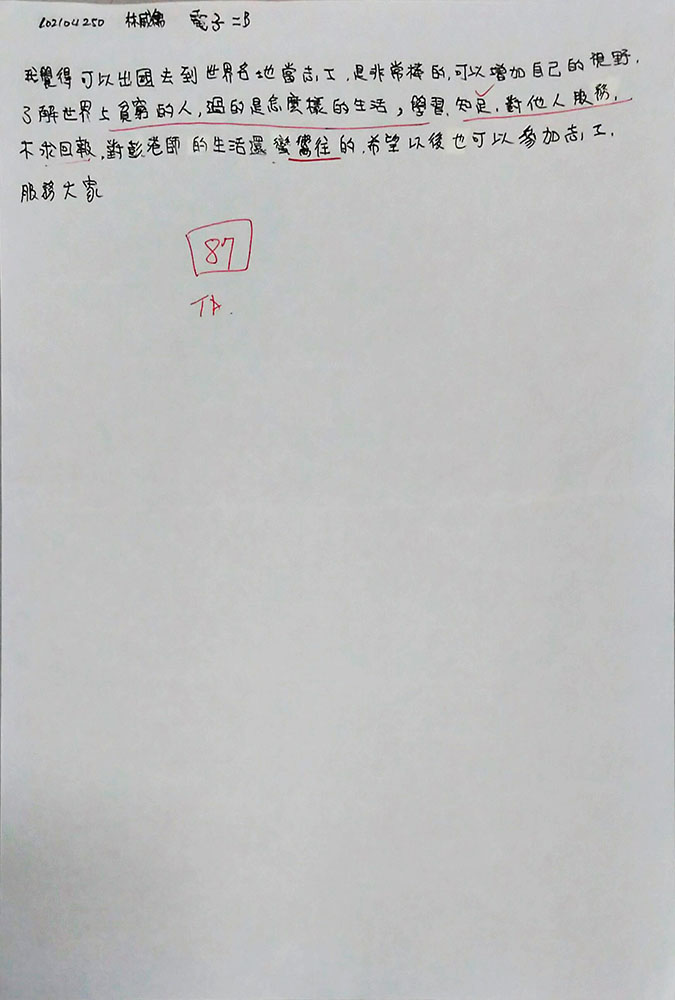 102104250 林威 電子二B
我覺得可以出國去到世界各地當志工,是非常棒的,可以增加自己的視野,
了解世界上貧窮的人,過的是怎麼樣的生活,學習.知足.對他人服務,
不求回報,對彭老師的生活還蠻嚮往的.希望以後也可以參加志工,
服務大家
87
TA.